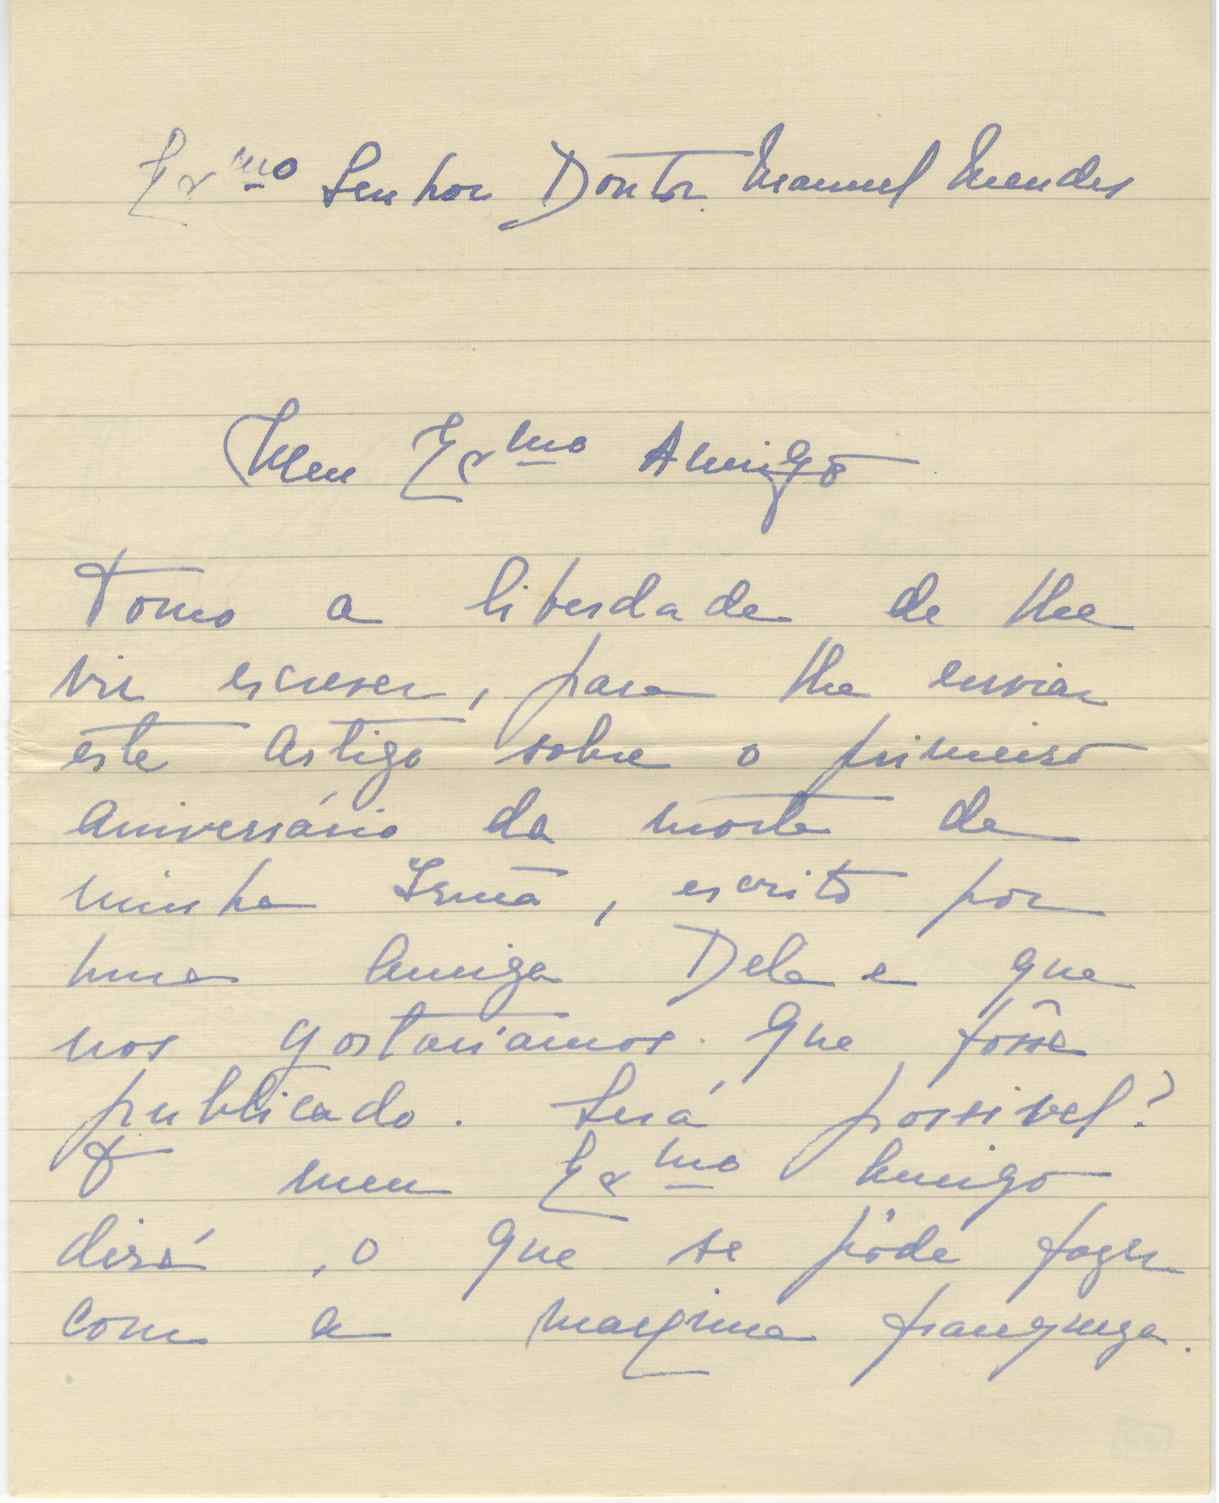 Exmo Senhor Doutor Manuel Mendes
Meu Exmo Amigo
Tomo a liberdade de lhe
vir escrever, para lhe enviar
este Artigo sobre o primeiro
aniversário da morte de
minha Irmã, escrito por
uma Amiga Dela e que
nos gostariamos. que fôsse
publicado. Será possivel?
O meu Exmo Amigo
dirá, o que se póde fazer
com a maxima franqueza.